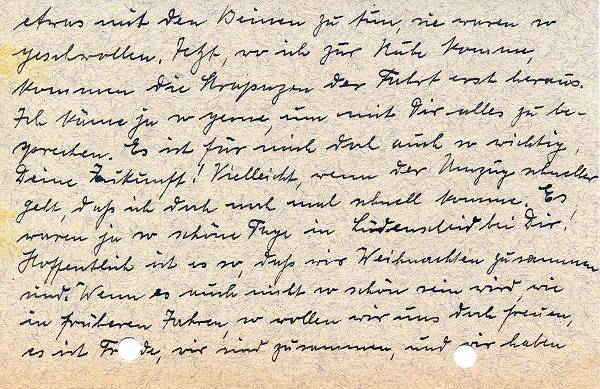 etwas mit den Beinen zu tun, sie waren so
geschwollen. Jetzt, wo ich zur Ruhe komme,
kommen die Strapazen der Fahrt erst heraus.
Ich käme ja so gerne, um mit Dir alles zu be-
sprechen. Es ist für mich doch auch so wichtig,
Deine Zukunft! Vielleicht, wenn der Umzug schneller
geht, daß ich doch noch mal schnell komme. Es
waren ja so schöne Tage in Lüdenscheid bei Dir.
Hoffentlich ist es so, daß wir Weihnachten zusammen
sind. Wenn es auch nicht so schön sein wird, wie
in früheren Jahren, so wollen wir uns doch freuen,
es ist, wir sind zusammen, und wir haben